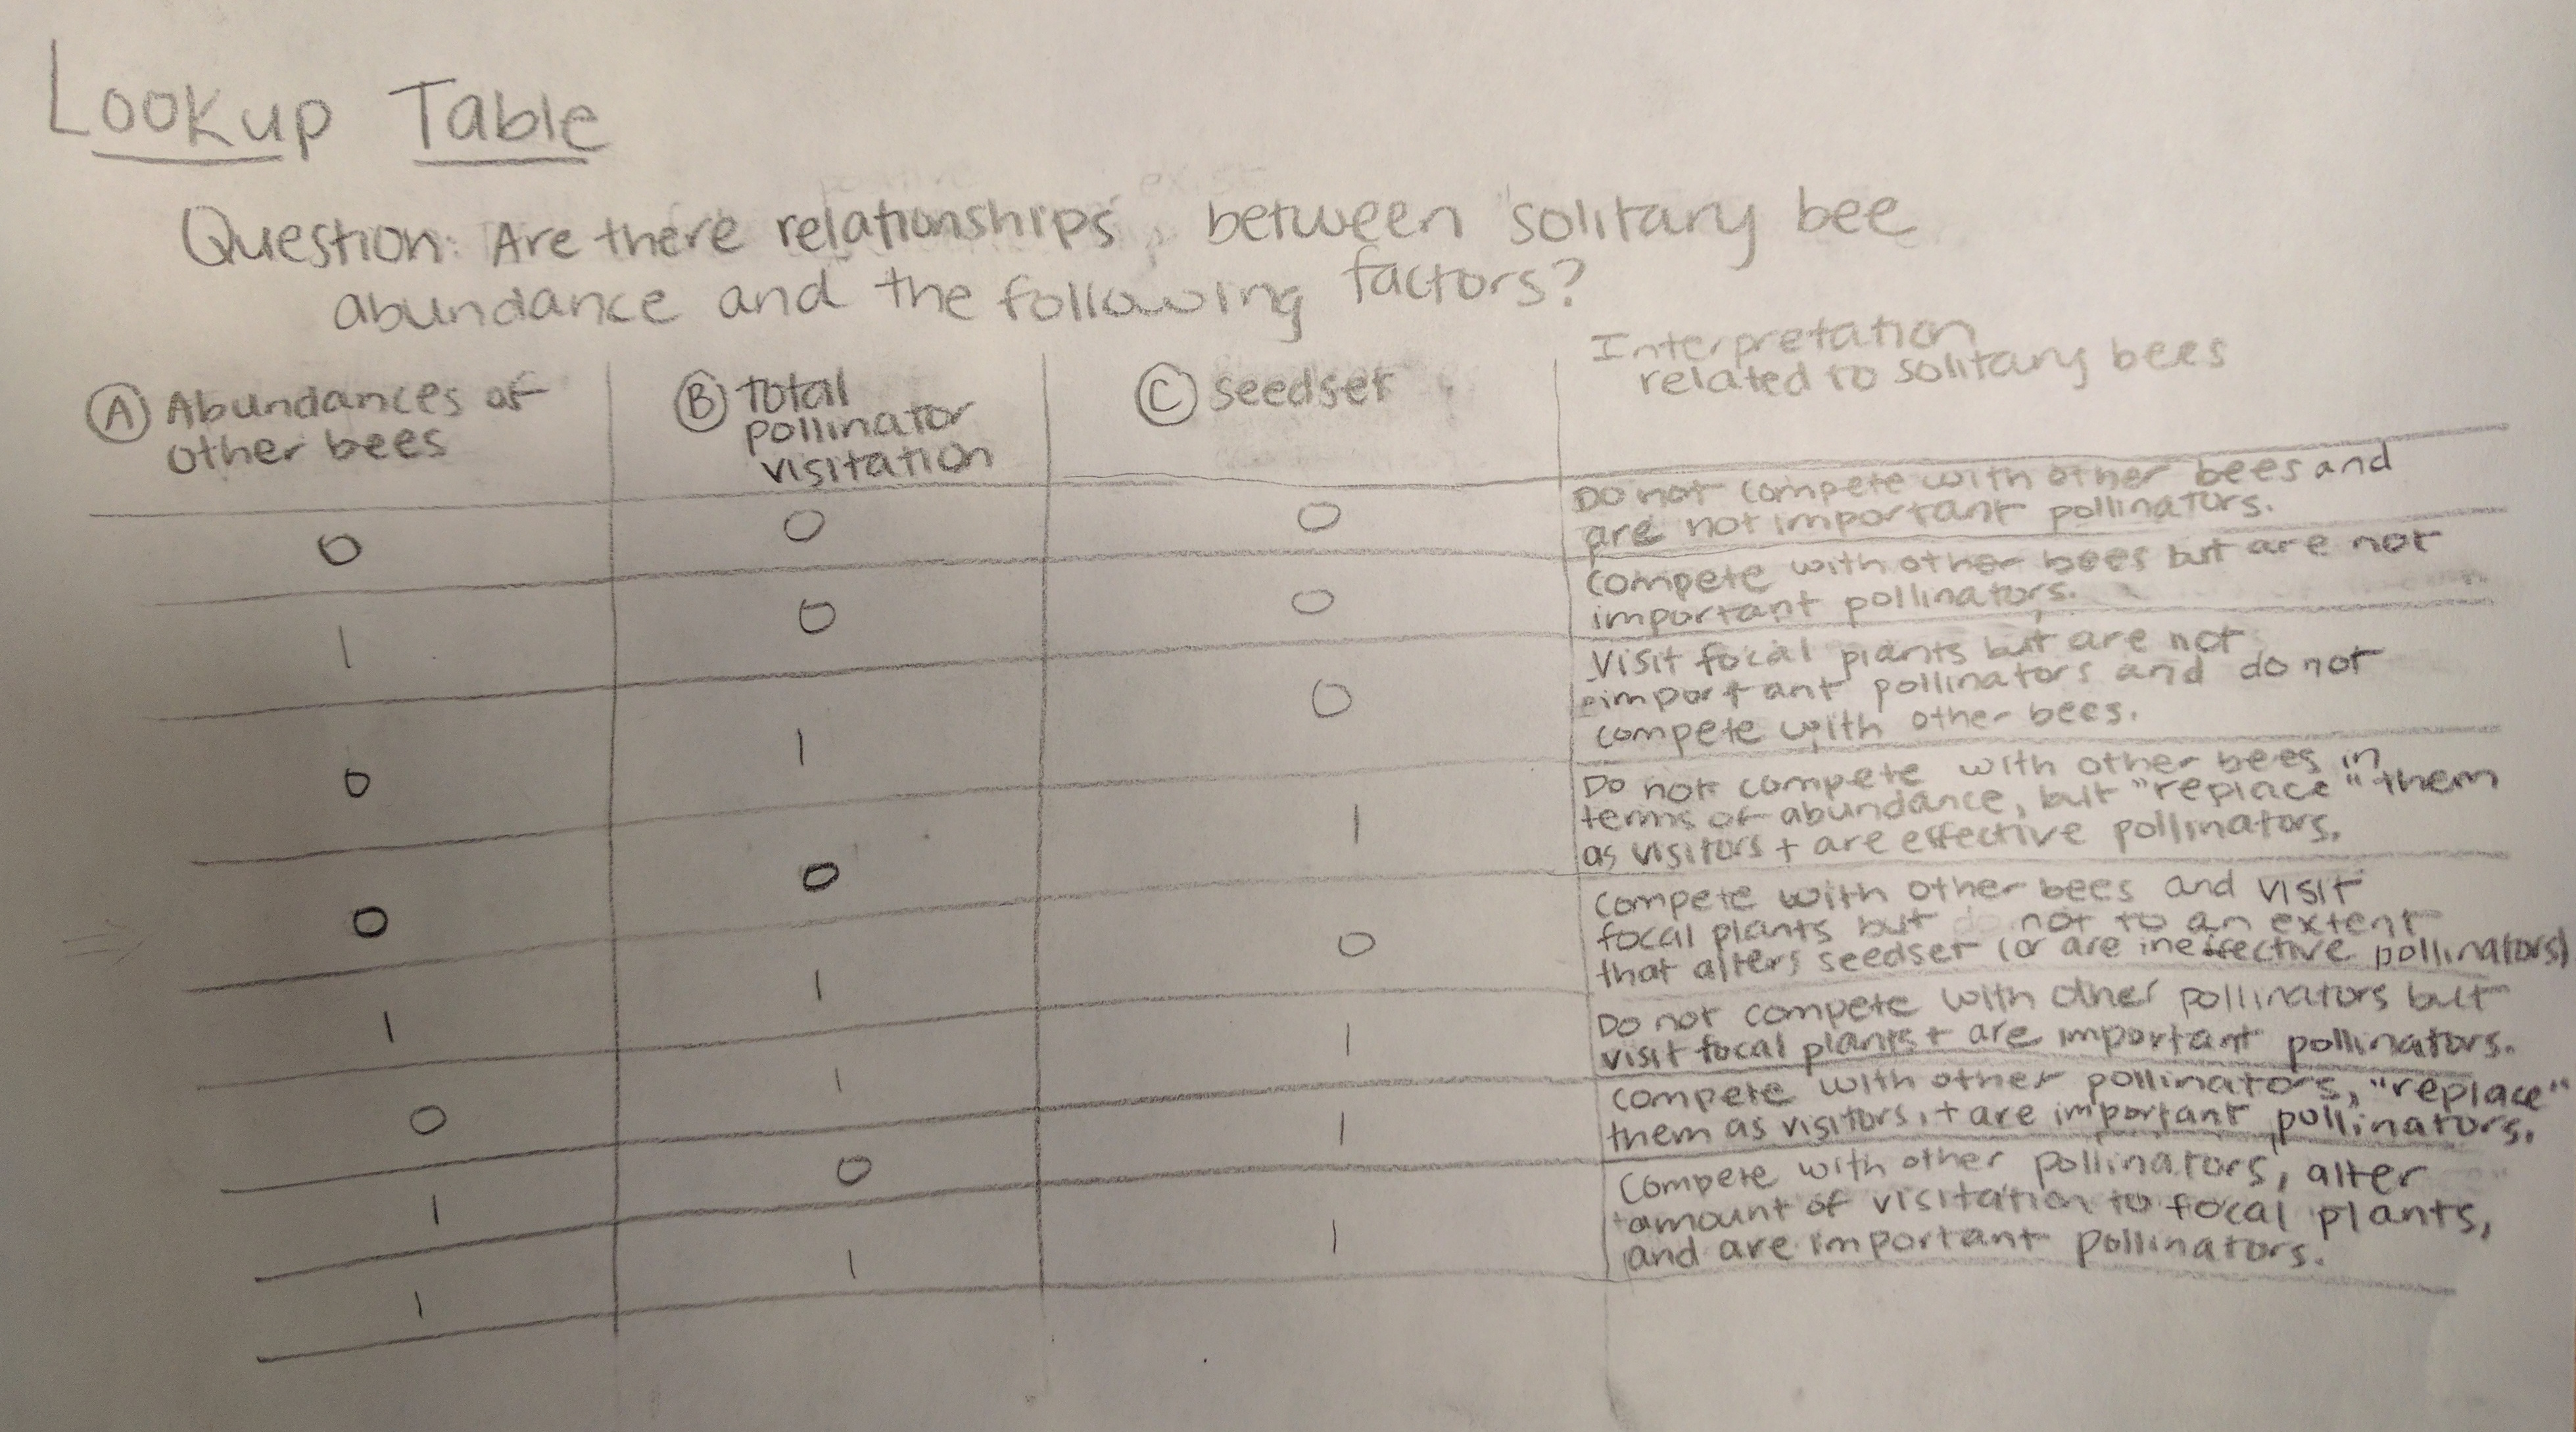 Lookup Table
Question: Are there relationships between solitary bee
abundance and the following factors?
Ⓐ Abundances of
other bees
Ⓑ Total
pollinator
visitation
Ⓒ Seedset
Interpretation
related to solitary bees
0 0 0
Do not compete with other bees and
are not important pollinators.
1 0 0
Compete with other bees but are not
important pollinators.
0 1 0
Visit focal plants but are not
important pollinators and do not
compete with other bees.
0 0 1
Do not compete with other bees in
terms of abundance, but "replace" them
as visitors + are effective pollinators.
1 1 0
Compete with other bees and visit
focal plants but not to an extent
that alters seedset (or are ineffective pollinators)
0 1 1
Do not compete with other pollinators but
visit focal plants + are important pollinators.
1 0 1
Compete with other pollinators, "replace"
them as visitors, + are important pollinators.
1 1 1
Compete with other pollinators, alter
amount of visitation to focal plants,
and are important pollinators.